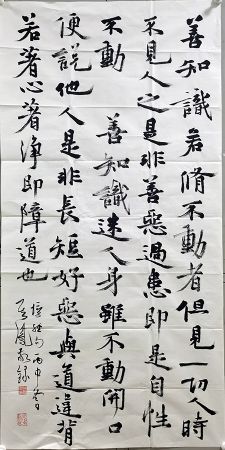 善知識若脩不動者但見一切人時
不見人之是非善惡過患即是自性
不動 善知識迷人身雖不動開口
便說他人是非長短好惡與道違背
若著心著淨即障道也
壇經句丙申冬日
敬錄